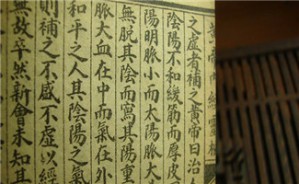 之虛者補之黃帝曰治人
陰陽不和緩筋而厚皮
陽明脈小而太陽脈大
無脫其陰而寫其陽重
脈大血在中而氣在外
和平之人其陰陽之氣
則補之不盛不虛以經
故卒然新會未知其